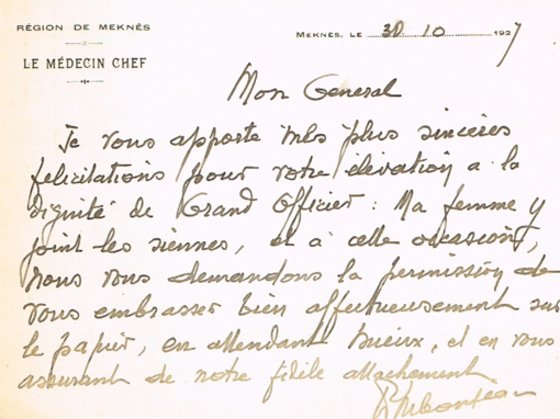 RÉGION DE MEKNÈS
LE MÉDECIN CHEF
MEKNÈS, LE 30 10 1927
Mon General
Je vous apporte mes plus sincères
felicitations pour votre élévation a la
dignité de Grand Officier : Ma femme y
joint les siennes, et à cette occasion,
nous vous demandons la permission de
vous embrasser bien affectueusement sur
le papier, en attendant mieux, et en vous
assurant de notre fidèle attachement